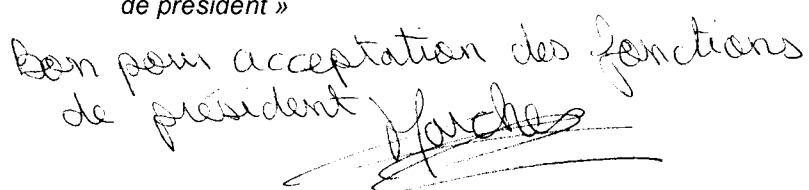 de président »
Bon pour acceptation des fonctions
de président